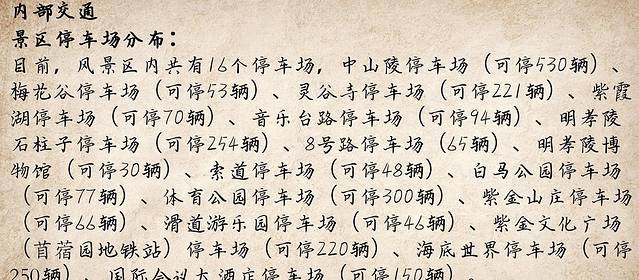 内部交通
景区停车场分布：
目前，风景区内共有16个停车场，中山陵停车场（可停530辆）、
梅花谷停车场（可停53辆）、灵谷寺停车场（可停221辆）、紫霞
湖停车场（可停70辆）、音乐台路停车场（可停94辆）、明孝陵
石柱子停车场（可停254辆）、8号路停车场（65辆）、明孝陵博
物馆（可停30辆）、索道停车场（可停48辆）、白马公园停车场
（可停77辆）、体育公园停车场（可停300辆）、紫金山庄停车场
（可停66辆）、滑道游乐园停车场（可停46辆）、紫金文化广场
（苜蓿园地铁站）停车场（可停220辆）、海底世界停车场（可停
250辆）、国际会议大酒店停车场（可停150辆）。